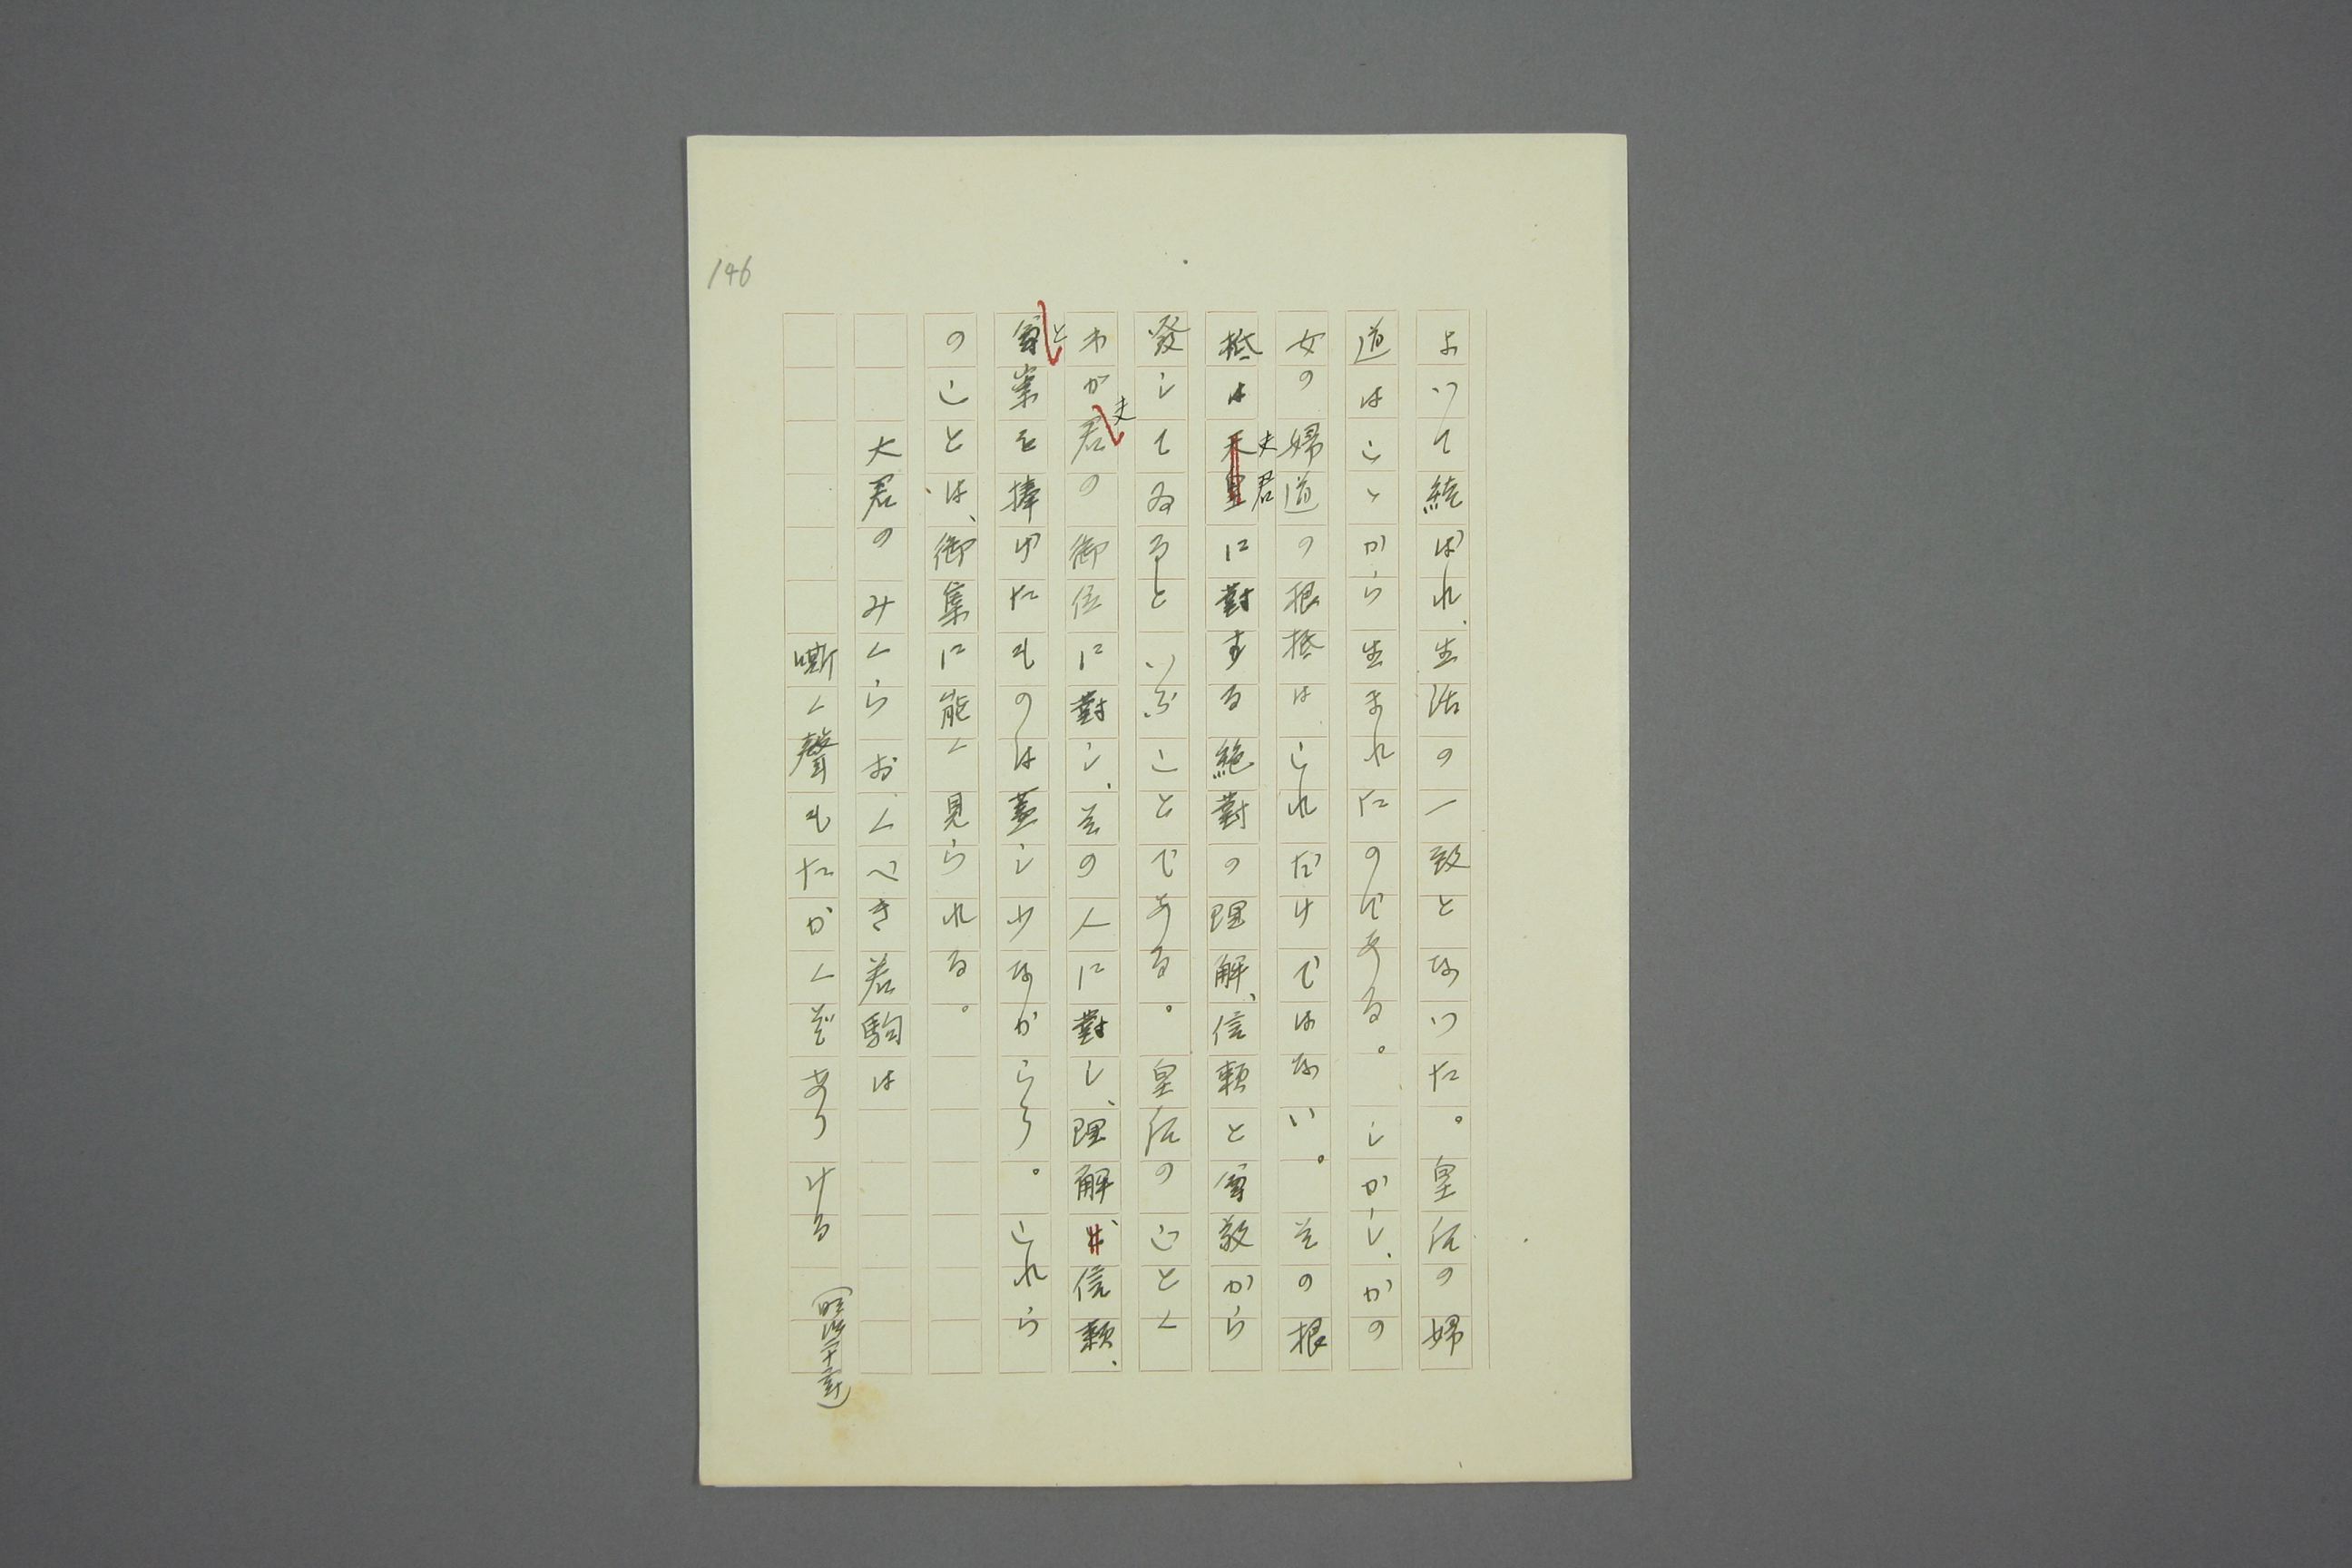 よつて統ばれ、生活の一致となつた。皇后の婦
道はこゝから生まれたのである。しかし、かの
女の婦道の根抵はこれだけではない。その根
抵は夫君に對する絶對の理解、信頼と尊敬から
發してゐるといふことである。皇后のごとく
わが夫君の御位に對し、その人に對し、理解、信頼、
と尊崇を捧げたものは蓋し少なからう。これら
のことは、御集に能く見られる。
大君のみくらおくべき若駒は
嘶く聲もたかくぞありける
(明治二十
146